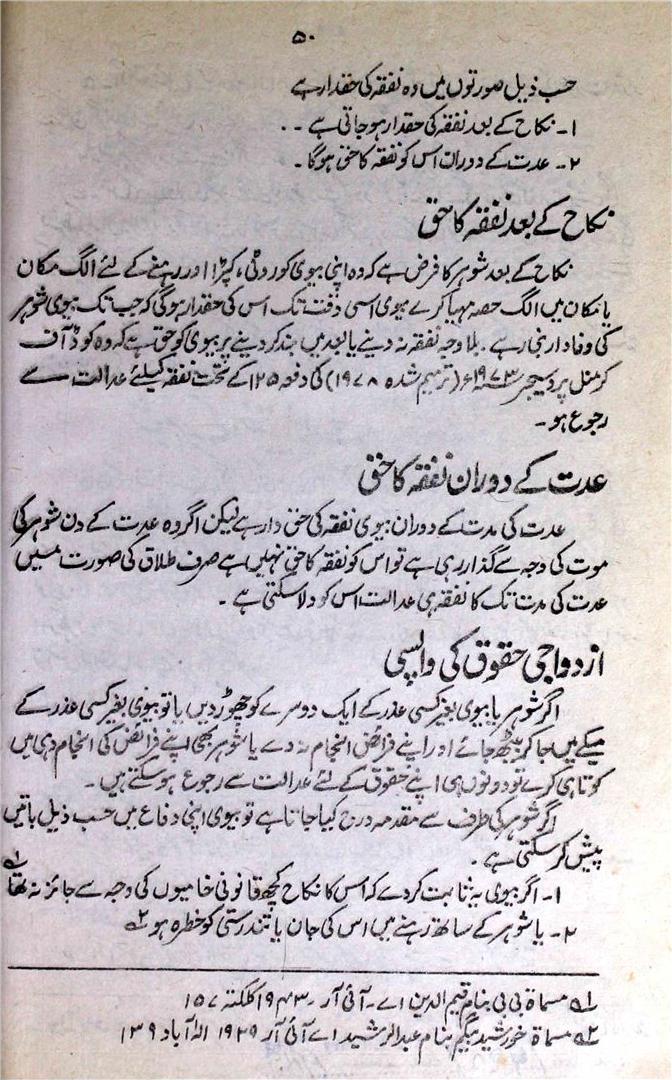 ۵۰
حسب ذیل صورتوں میں وہ نفقہ کی حقدار ہے
۱۔ نکاح کے بعد نفقہ کی حقدار ہو جاتی ہے ۔ ۔
۲۔ عدت کے دوران اس کو نفقہ کا حق ہوگا ۔
نکاح کے بعد نفقہ کا حق
نکاح کے بعد شوہر کا فرض ہے کہ وہ اپنی بیوی کو روٹی ، کپڑا اور رہنے کے لئے الگ مکان
یا مکان میں الگ حصہ مہیا کرے بیوی اسی وقت تک اس کی حقدار ہوگی کہ جب تک بیوی شوہر
کی وفادار بنی رہے ۔ بلا وجہ نفقہ نہ دینے یا بعد میں بند کر دینے پر بیوی کو حق ہے کہ وہ کوڈ آف
کرمنل پروسیجر ۱۹۷۳ء (ترمیم شدہ ۱۹۷۸) کی دفعہ ۱۲۵ کے تحت نفقہ کیلئے عدالت سے
رجوع ہو ۔
عدت کے دوران نفقہ کا حق
عدت کی مدت کے دوران بیوی نفقہ کی حق دار ہے لیکن اگر وہ عدت کے دن شوہر کی
موت کی وجہ سے گذار رہی ہے تو اس کو نفقہ کا حق نہیں ہے صرف طلاق کی صورت میں
عدت کی مدت تک کا نفقہ ہی عدالت اس کو دلا سکتی ہے ۔
ازدواجی حقوق کی واپسی
اگر شوہر یا بیوی بغیر کسی عذر کے ایک دوسرے کو چھوڑ دیں یا تو بیوی بغیر کسی عذر کے
میکے میں جا کر بیٹھ جائے اور اپنے فرائض انجام نہ دے یا شوہر بھی اپنے فرائض کی انجام دہی میں
کوتاہی کرے تو دونوں ہی اپنے حقوق کے لئے عدالت سے رجوع ہو سکتے ہیں ۔
اگر شوہر کی طرف سے مقدمہ درج کیا جاتا ہے تو بیوی اپنی دفاع میں حسب ذیل باتیں
پیش کر سکتی ہے ۔
۱۔ اگر بیوی یہ ثابت کر دے کہ اُس کا نکاح کچھ قانونی خامیوں کی وجہ سے جائز نہ تھا ؎۱
۲۔ یا شوہر کے ساتھ رہنے میں اس کی جان یا تندرستی کو خطرہ ہو ؎۲
؎۱ مسماۃ بی بی بنام قیم الدین اے۔ آئی آر ۱۹۴۳ کلکتہ ۱۵۷
؎۲ مسماۃ خورشید بیگم بنام عبدالرشید اے آئی آر ۱۹۲۹ الہ آباد ۱۳۹